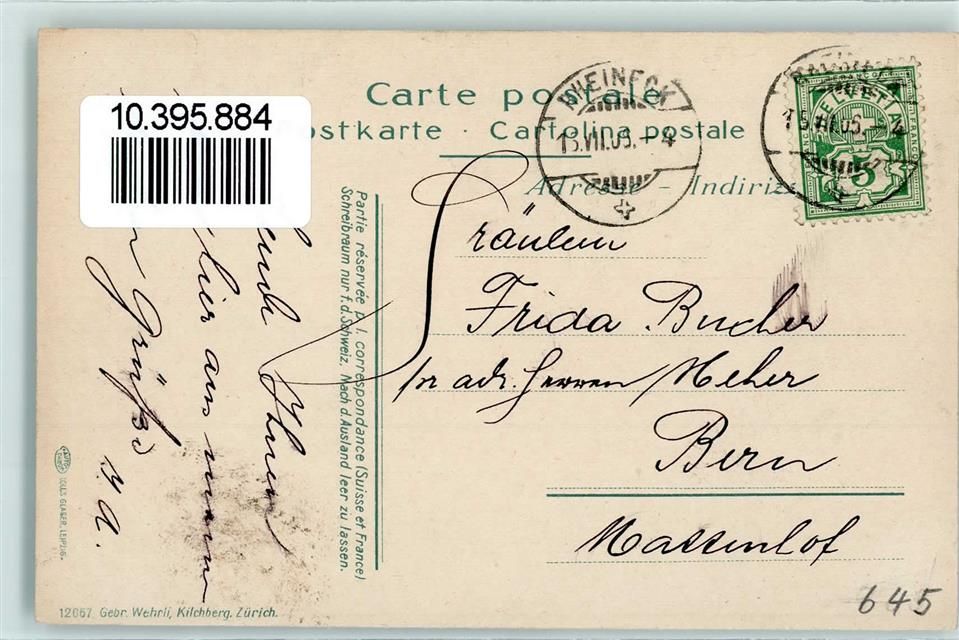 Carte postale
Postkarte · Cartolina postale
Adresse – Indirizzo
10.395.884
RHEINECK
15.VII.05. – 4
HELVETIA
FRANCO
5
Partie réservée p. l. correspondance (Suisse et France)
Schreibraum nur f. d. Schweiz. Nach d. Ausland leer zu lassen.
Fräulein
Frida Bucher
adr. Herren
Bern
Ihnen
hier aus
Grüße
LOUIS GLASER, LEIPZIG.
12667 Gebr. Wehrli, Kilchberg. Zürich.
645